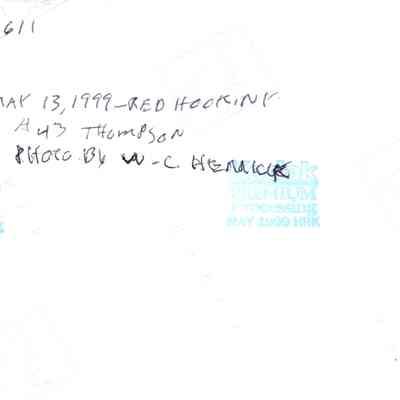 611
MAY 13, 1999 - RED HOOK, NY
THOMPSON
PHOTO BY W-C. HERRICK
Kodak
PREMIUM
Processing
MAY 1999 HRK